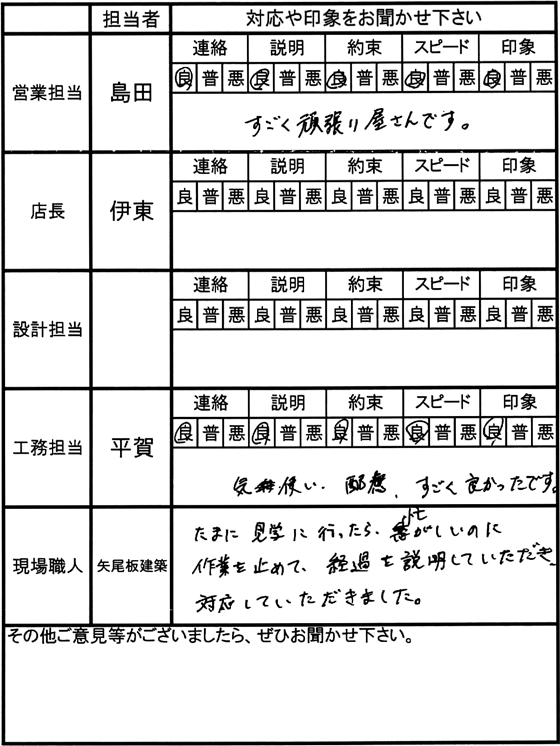 担当者 対応や印象をお聞かせ下さい
営業担当 島田
連絡 説明 約束 スピード 印象
良 普 悪 良 普 悪 良 普 悪 良 普 悪 良 普 悪
すごく頑張り屋さんです。
店長 伊東
連絡 説明 約束 スピード 印象
良 普 悪 良 普 悪 良 普 悪 良 普 悪 良 普 悪
設計担当
連絡 説明 約束 スピード 印象
良 普 悪 良 普 悪 良 普 悪 良 普 悪 良 普 悪
工務担当 平賀
連絡 説明 約束 スピード 印象
良 普 悪 良 普 悪 良 普 悪 良 普 悪 良 普 悪
気使い、配慮、すごく良かったです。
現場職人 矢尾板建築
たまに見学に行ったら、忙がしいのに
作業を止めて、経過を説明していただき
対応していただきました。
その他ご意見等がございましたら、ぜひお聞かせ下さい。